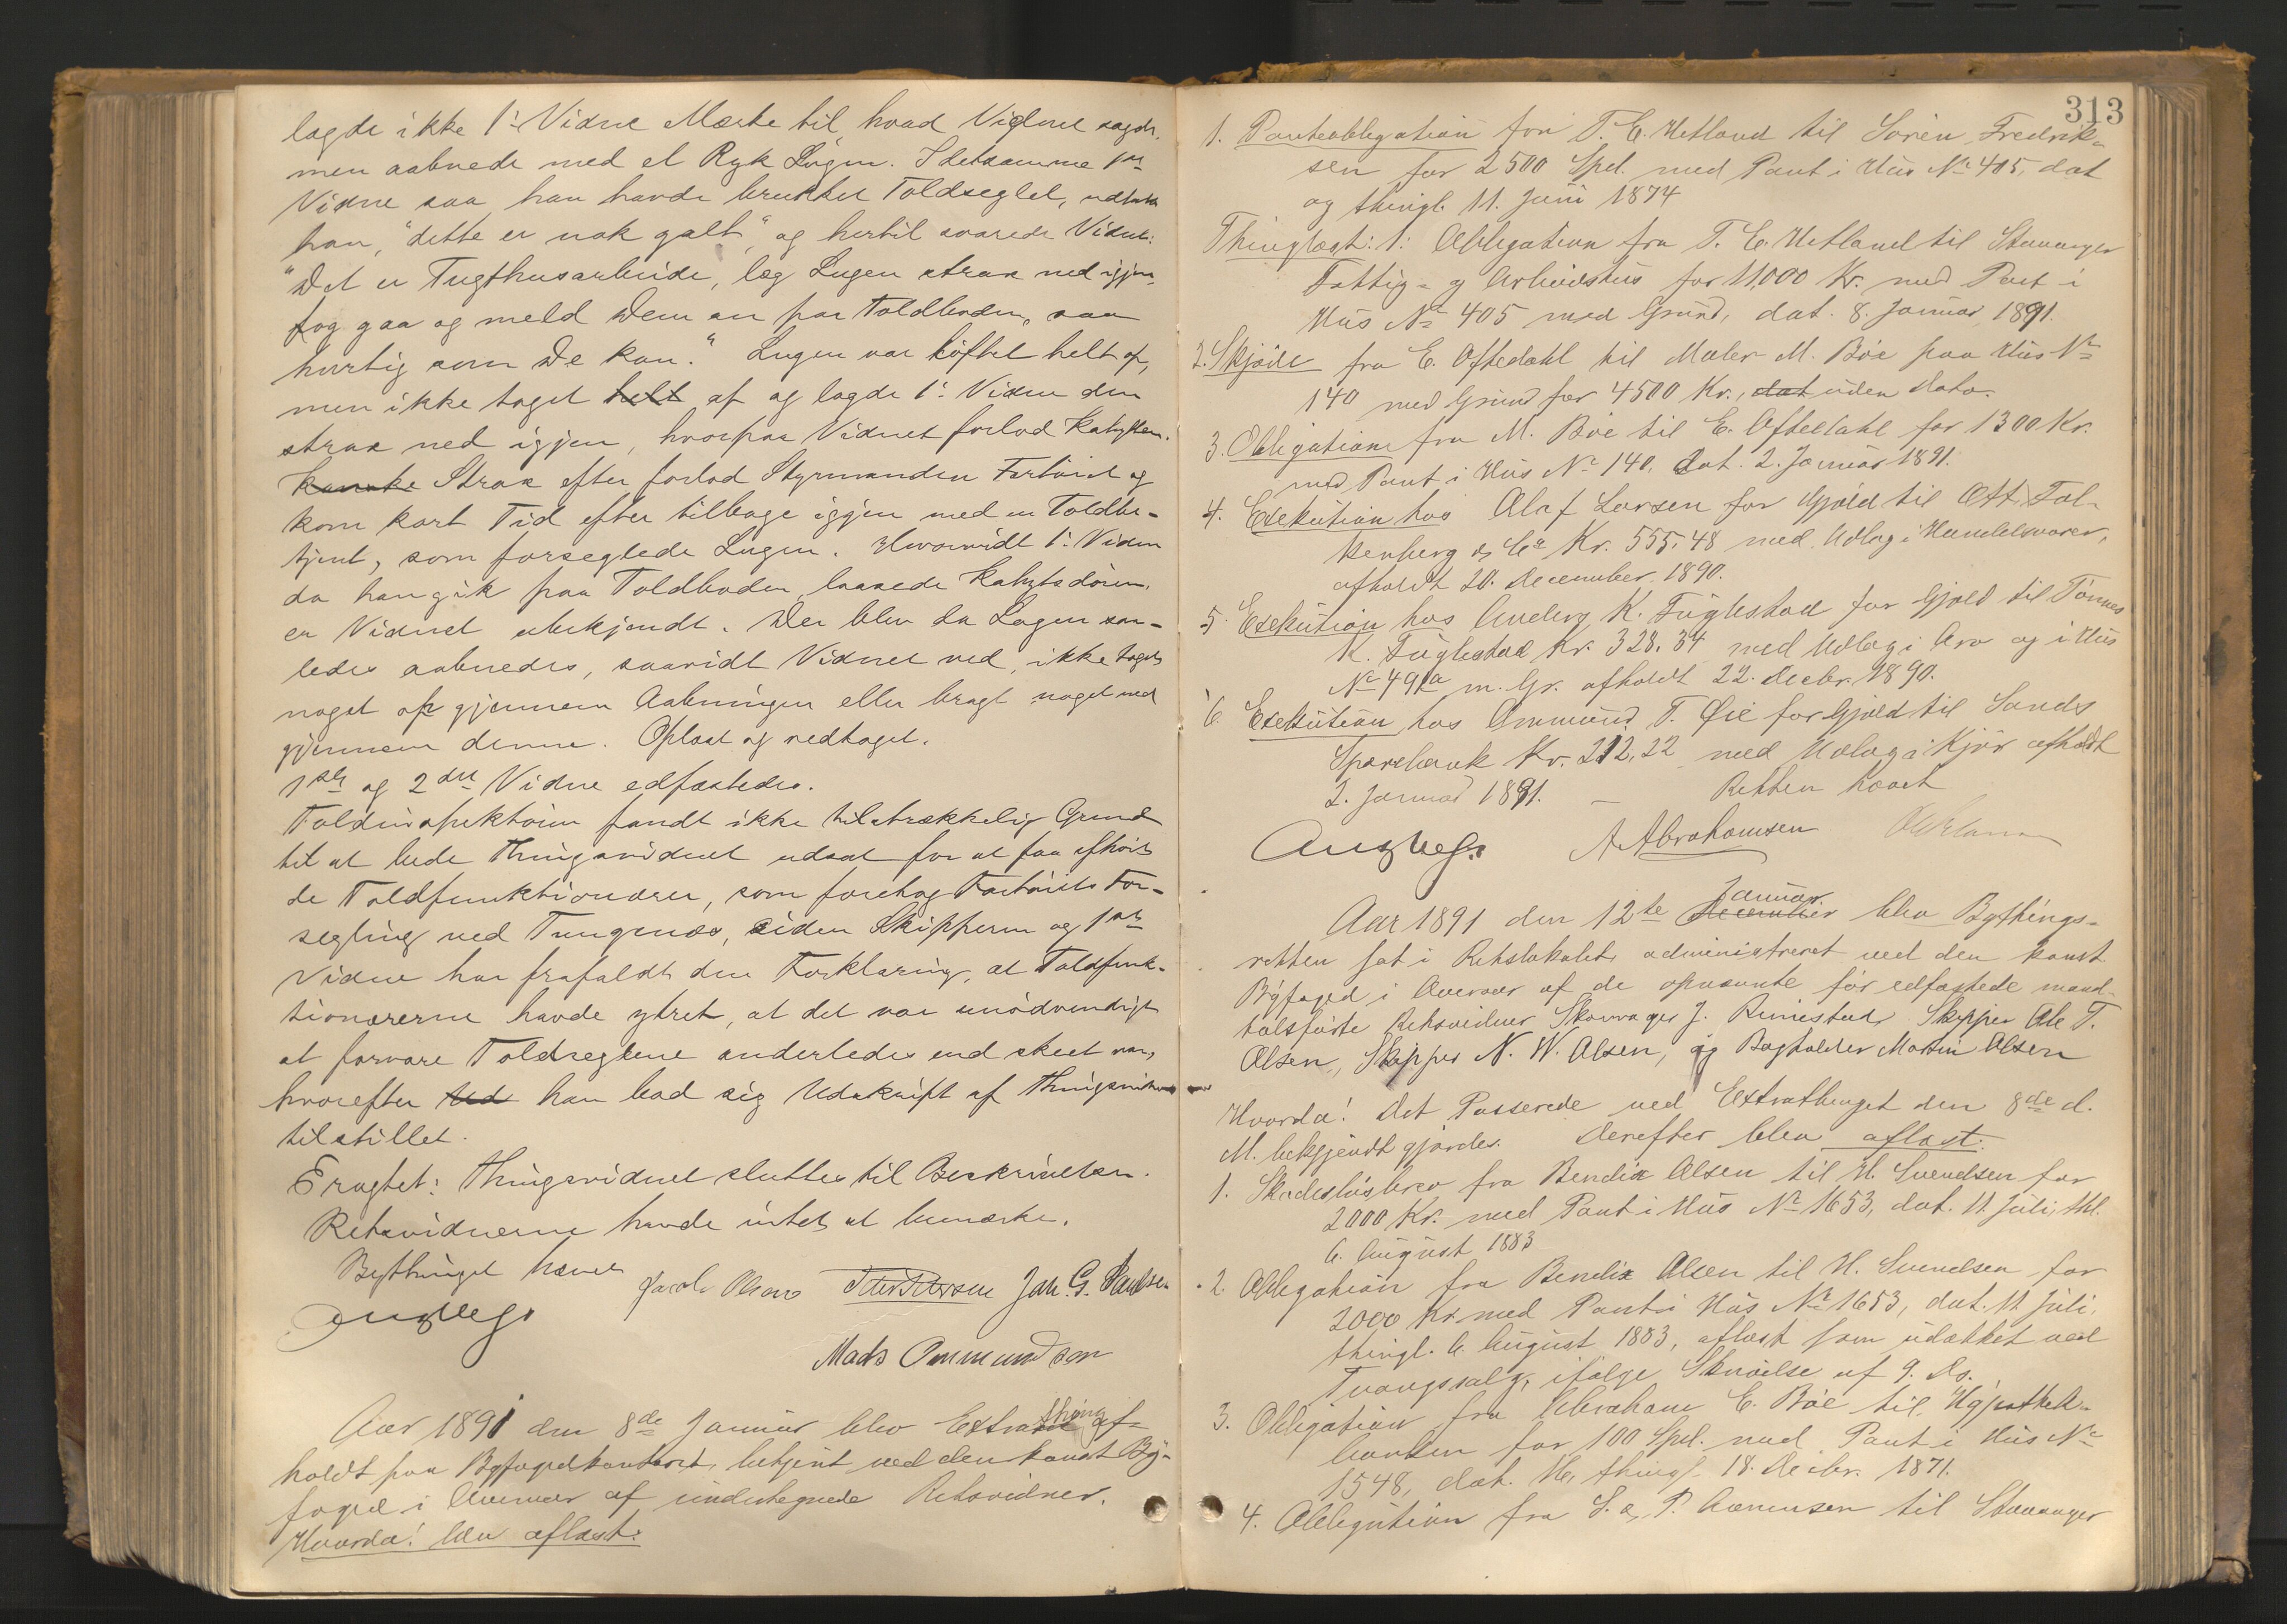 lagde ikke 1' Vidne Mærke til hvad Vidnet sagde,
men aabnede med et Ryk Lugen. I detsamme 1ste
Vidne saa han havde brukket Toldseglet, udbrøt
han, "dette er nok galt" og hertil svarede Vidnet:
"Det er Tugthusarbeide, læg Lugen strax ned igjen,
og gaa og meld Dem an paa Toldboden, saa
hurtig som De kan." Lugen var løftet helt op,
men ikke taget helt af og lagde 1' Vidne den
strax ned igjen, hvorpaa Vidnet forlod Kahytten.
Kanske Strax efter forlod Styrmanden Fartøiet og
kom kort Tid efter tilbage igjen med en Toldbe-
tjent, som forseglede Lugen. Hvorvidt 1' Vidne
da han gik paa Toldboden laasede Kahytsdøren,
er Vidnet ubekjendt. Der blev da Lugen saa-
ledes aabnedes, saavidt Vidnet ved, ikke taget
noget op gjennem Aabningen eller bragt noget ned
gjennem denne. Oplæst og vedtaget.
1ste og 2det Vidne edfæstedes.
Toldinspektøren fandt ikke tilstrækkelig Grund
til at bede Thingsvidnet udsat for at faa afhørt
de Toldfunktionærer, som foretog Fartøiets For-
segling ved Tungenæs, siden Skipperen og 1ste
Vidne har frafaldt den Forklaring, at Toldfunk-
tionærerne havde ytret, at det var unødvendigt
at forvare Toldseglene anderledes end skeet var,
hvorefter Ud han bad sig Udskrift af Thingsvidnet
tilstillet.
Eragtet: Thingsvidnet sluttes til Beskrivelsen.
Retsvidnerne havde intet at bemærke.
Bythinget hævet
Jacob Olsen Peter Petersen Joh. G.
Mads Ommundsen
Aar 1891 den 8de Januar blev Extrathing af-
holdt paa Byfogedkontoret, betjent ved den konst. By-
foged i Averøer af undertegnede Retsvidner.
Hvorda! blev aflæst:
313
1. Panteobligation fra T. E. Hetland til Søren Fredrik-
sen for 2500 Spd. med Pant i Hus No 405, dat
og thingl. 11. Juni 1874
Thinglæst: 1: Obligation fra T. E. Hetland til Stavanger
Fattig- og Arbeidshus for 11,000 Kr. med Pant i
Hus No 405 med Grund, dat. 8. Januar 1891.
2. Skjøde fra E. Aftedahl til Maler M. Bøe paa Hus No
140 med Grund for 4500 Kr., dat uden Dato.
3. Obligation fra M. Bøe til E. Aftedahl for 1300 Kr.
med Pant i Hus No 140. Dat. 2. Januar 1891.
4. Exekution hos Olaf Larsen for Gjæld til Ott. Fal-
kenberg & Co Kr. 555,48 med Udlæg i Handelsvarer,
afholdt 20. December 1890.
5. Exekution hos Anders K. Fuglestad for Gjæld til Tønnes
K. Fuglestad Kr. 328,34 med Udlæg i Arv og i Hus
No 491a m. Gr. afholdt 22. Decbr. 1890.
6. Exekution hos Ommund T. Øie for Gjæld til Sands
Sparebank Kr. 212,22 med Udlæg i Kjør afholdt
2. Januar 1891. – Retten hævet
A Abrahamsen
Aar 1891 den 12te December Januar blev Bythings-
retten sat i Retslokalet, administreret ved den konst.
Byfoged i Averøer af de opnævnte før edfæstede mand-
talsførte Retsvidner Skovvager J. Rimestad, Skipper Ole T.
Olsen, Skipper N. W. Olsen, og Bogholder Martin Olsen
Hvorda! Det Passerede ved Extrathinget den 8de d.
M. bekjendtgjordes. Derefter blev aflæst:
1. Skadesløsbrev fra Bendix Olsen til H. Svendsen for
2000 Kr. med Pant i Hus No 1653, dat. 11 Juli, thl.
6. August 1883
2. Obligation fra Bendix Olsen til H. Svendsen for
2000 Kr. med Pant i Hus No 1653, dat. 11 Juli,
thingl. 6. August 1883, aflæst som udækket ved
Tvangssalg, ifølge Skrivelse af 9. ds.
3. Obligation fra Abraham E. Bøe til Hypothek-
banken for 100 Spd. med Pant i Hus No
1548, dat. 16, thingl. 18. Decbr. 1871.
4. Obligation fra S. & P. Aanensen til Stavanger